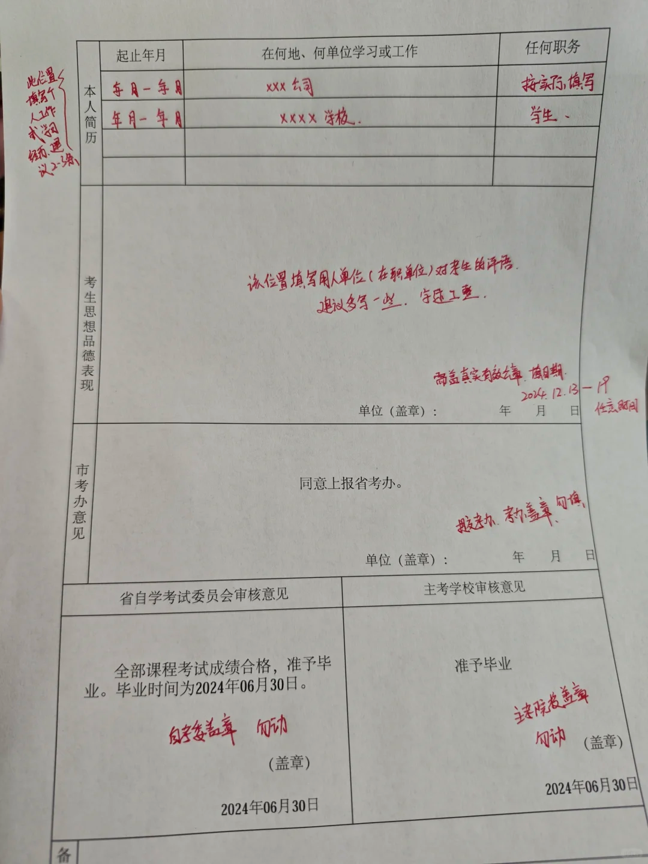 起止年月 在何地、何单位学习或工作 任何职务
本人简历
年月一年月 xxx公司 按实际填写
年月一年月 xxxx学校. 学生.
此位置
填写个
人工作
或学习
经历.建
议2-3条
考生思想品德表现
该位置填写用人单位(在职单位)对考生的评语.
建议多写一些. 字迹工整.
需盖真实有效公章. 填日期.
2024.12.13—19
任意时间
单位（盖章）： 年 月 日
市考办意见
同意上报省考办。
提交考办. 考办盖章 勿填.
单位（盖章）： 年 月 日
省自学考试委员会审核意见 主考学校审核意见
全部课程考试成绩合格，准予毕
业。毕业时间为2024年06月30日。
准予毕业
自考委盖章 勿动
主考院校盖章
勿动
（盖章） （盖章）
2024年06月30日 2024年06月30日
备